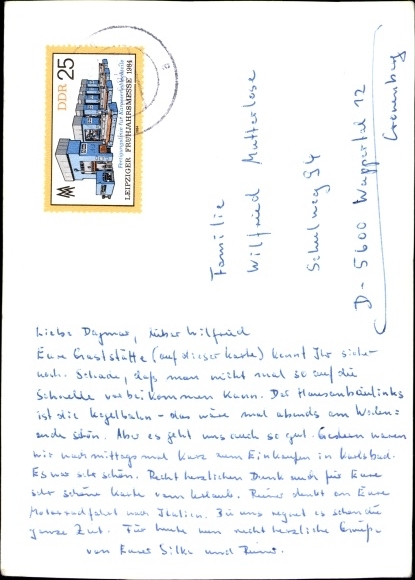 DDR 25
LEIPZIGER FRÜHJAHRSMESSE 1984
Familie
Wilfried Mutterlose
Schulweg 34
D-5600 Wuppertal 12
Cronenberg
Liebe Dagmar, lieber Wilfried
Eure Gaststätte (auf dieser Karte) kennt Ihr sicher
noch. Schade, daß man nicht mal so auf die
Schnelle vorbeikommen kann. Das links
ist die Kegelbahn - das wäre mal abends am Wochen-
ende schön. Aber es geht uns auch so gut. Gestern waren
wir nachmittags mal kurz zum Einkaufen in Karlsbad.
Es war sehr schön. Recht herzlichen Dank auch für Eure
sehr schöne Karte vom Urlaub. denkt an Eure
Motorradfahrt nach Italien. Bei uns regnet es schon die
ganze Zeit. Für heute nun recht herzliche Grüße
von Eurer Silke und